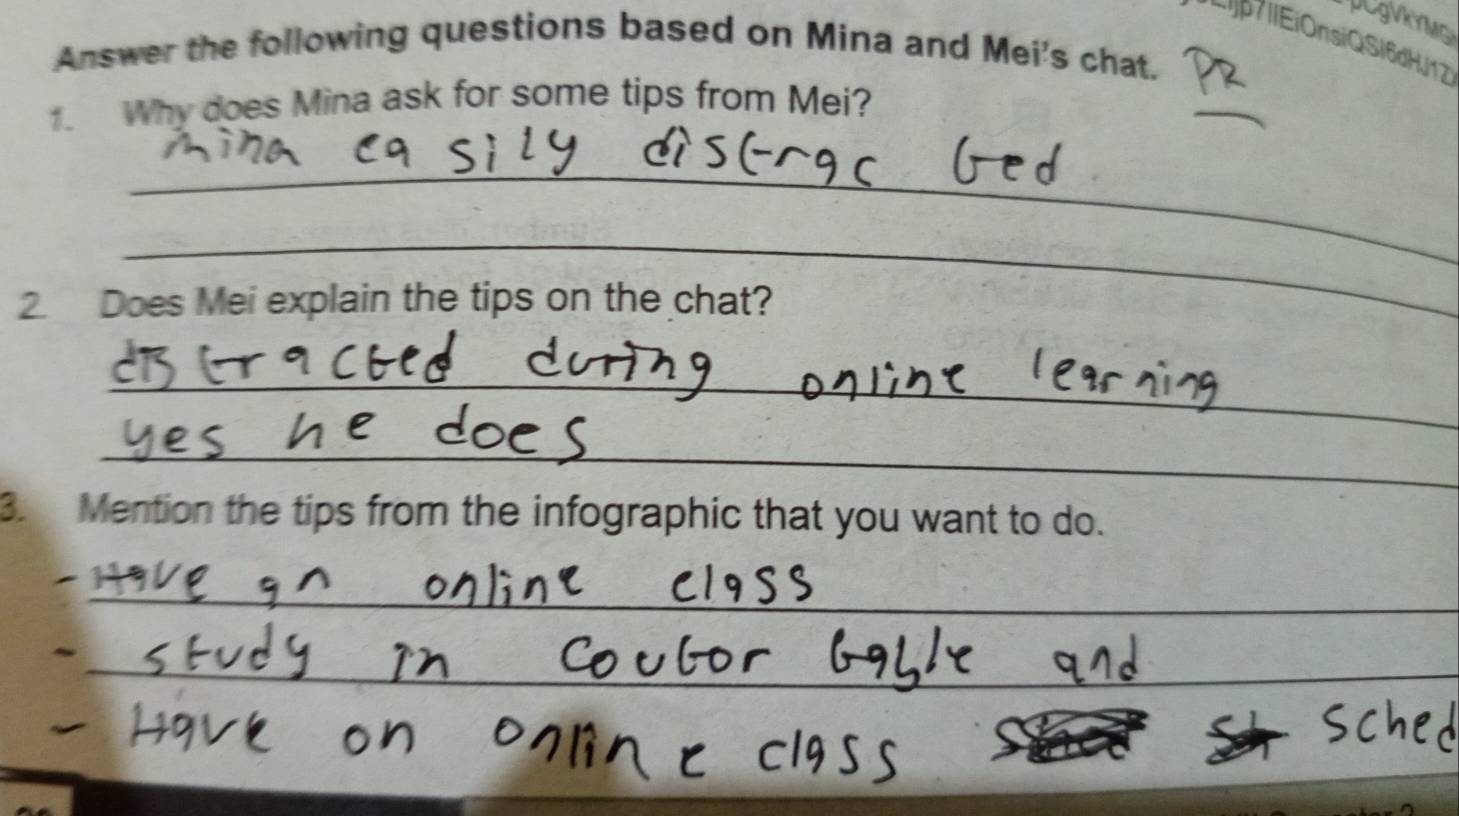 Answer the following questions based on Mina and Mei's chat. PR
1. Why does Mina ask for some tips from Mei?
mina easily distrac ted
2. Does Mei explain the tips on the chat?
distracted during online learning
yes he does
3. Mention the tips from the infographic that you want to do.
- Have an online class
- study in coutor table and
- Have on online class sched